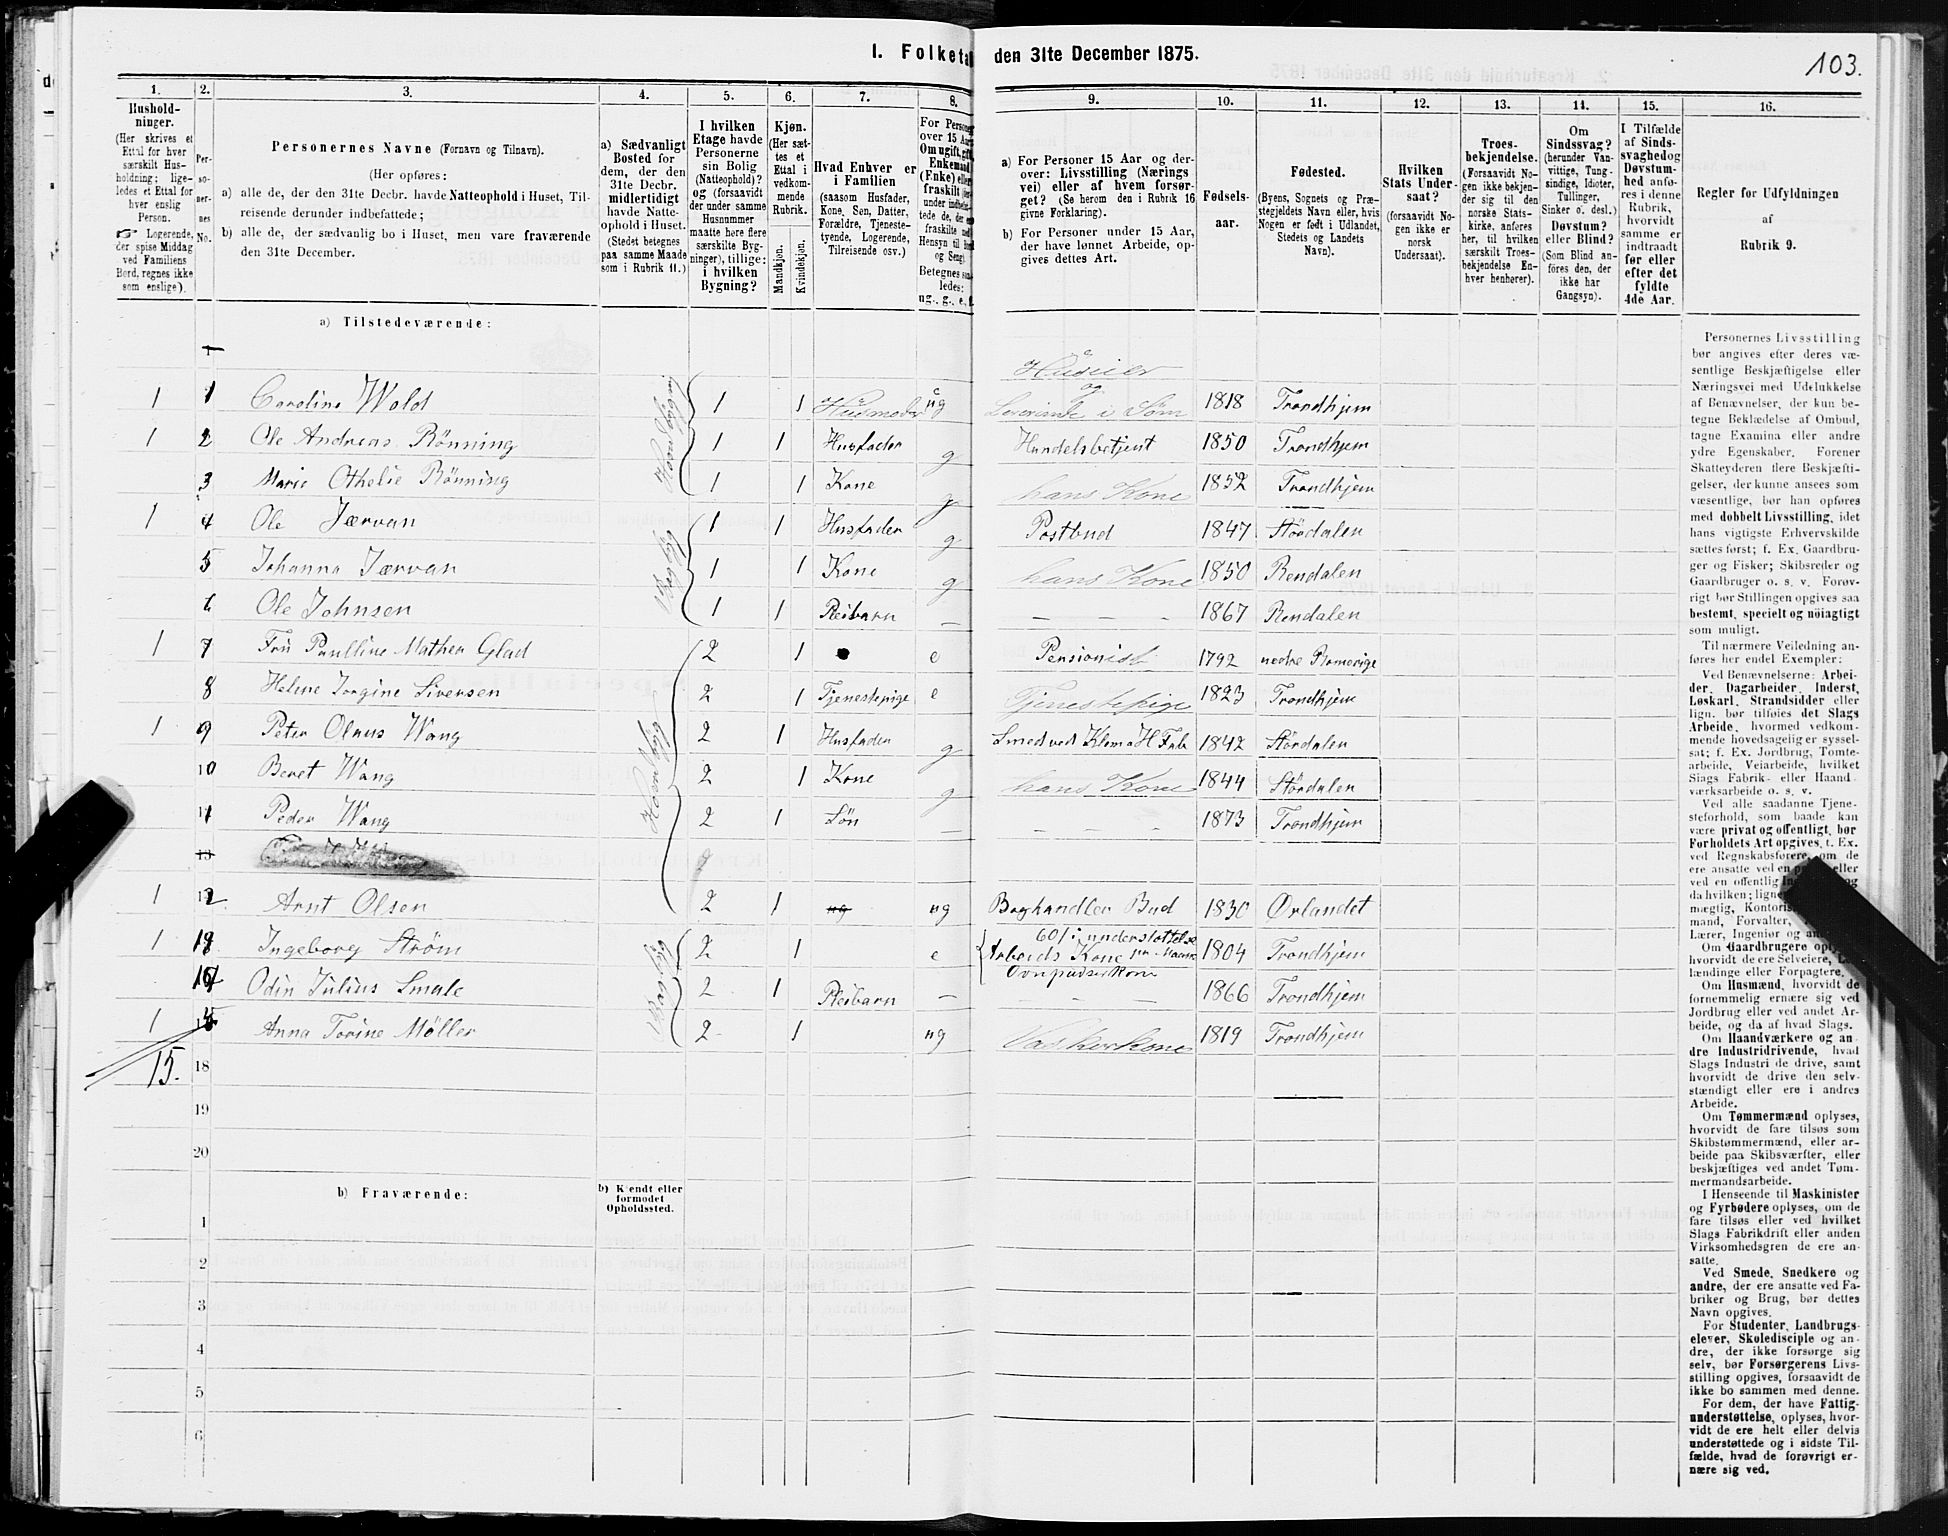 I. Folketa den 31te December 1875.
103.
1.
Hushold-
ninger.
(Her skrives et
Ettal for hver
særskilt Hus-
holdning; lige-
ledes et Ettal for
hver enslig
Person.
Logerende,
der spise Middag
ved Familiens
Bord, regnes ikke
som enslige).
2.
Per-
so-
ner-
nes
No.
3.
Personernes Navne (Fornavn og Tilnavn).
(Her opføres:
a) alle de, der den 31te Decbr. havde Natteophold i Huset, Til-
reisende derunder indbefattede;
b) alle de, der sædvanlig bo i Huset, men vare fraværende
den 31te December.
4.
a) Sædvanligt
Bosted for
dem, der den
31te Decbr.
midlertidigt
havde Natte-
ophold i Huset.
(Stedet betegnes
paa samme Maade
som i Rubrik 11.)
5.
I hvilken
Etage havde
Personerne
sin Bolig
(Natteophold)?
og (forsaavidt
der under samme
Husnummer
maatte høre flere
særskilte Byg-
ninger), tillige:
i hvilken
Bygning?
6.
Kjøn.
(Her sæt-
tes et
Ettal i
vedkom-
mende
Rubrik.
Mandkjøn.
Kvindekjøn.
7.
Hvad Enhver er
i Familien
(saasom Husfader,
Kone, Søn, Datter,
Forældre, Tjeneste-
tyende, Logerende,
Tilreisende osv.)
8.
For Persone
over 15 Aar
Om ugift, gift,
Enkemand
(Enke) eller
fraskilt
under indbefat-
tede de, der
fraskilte
Hensyn til
og Seng)
Betegnes saa-
ledes:
ug., g., e., f.
9.
a) For Personer 15 Aar og der-
over: Livsstilling (Nærings
vei) eller af hvem forsør-
get? (Se herom den i Rubrik 16
givne Forklaring).
b) For Personer under 15 Aar,
der have lønnet Arbeide, op-
gives dettes Art.
10.
Fødsels-
aar.
11.
Fødested.
(Byens, Sognets og Præ-
stegjeldets Navn eller, hvis
Nogen er født i Udlandet,
Stedets og Landets
Navn).
12.
Hvilken
Stats Under-
saat?
(forsaavidt No-
gen ikke er
norsk
Undersaat).
13.
Troes-
bekjendelse.
(Forsaavidt No-
gen ikke bekjen-
der sig til den
norske Stats-
kirke, anføres
her, til hvilken
særskilt Troes-
bekjendelse En-
hver henhører).
14.
Om
Sindssvag?
(herunder Van-
vittige, Tung-
sindige, Idioter,
Tullinger,
Sinker o. desl.)
Døvstum?
eller Blind?
(Som Blind an-
føres den, der
ikke har
Gangsyn).
15.
I Tilfælde
af Sinds-
svaghed og
Døvstum-
hed anfø-
res i denne
Rubrik,
hvorvidt
samme er
indtraadt
før eller
efter det
fyldte
4de Aar.
16.
Regler for Udfyldningen
af
Rubrik 9.
a) Tilstedeværende:
1 1 Caroline Wold 1 1 Husmoder ug Huseier og Leverande i Søm 1818 Trondhjem
1 2 Ole Andreas Rönning 1 1 Husfader g Handelsbetjent 1850 Trondhjem
3 Marie Othelie Rönning 1 1 Kone g hans Kone 1852 Trondhjem
1 4 Ole Jærvan 1 1 Husfader g Postbud 1847 Stördalen
5 Johanna Jærvan 1 1 Kone g hans Kone 1850 Rendalen
6 Ole Johnsen 1 1 Pleibarn – – – – 1867 Rendalen
1 7 Fru Paulline Mathea Glad 2 1 e Pensionist 1792 nedre Romerige
8 Helene Jorgine Sivensen 2 1 Tjenestepige e Tjenestepige 1823 Trondhjem
1 9 Peter Olaus Wang 2 1 Husfader g Smed ved Klem a H Fab 1842 Stördalen
10 Beret Wang 2 1 Kone g hans Kone 1844 Stördalen
11 Peder Wang 2 1 Sön – – – – 1873 Trondhjem
13
1 12 Arnt Olsen 2 1 ug ug Boghandler Bud 1830 Ørlandet
1 13 Ingeborg Ström 2 1 e Arbeids Kone Ovnpudserkone 1804 Trondhjem
14 Odin Julius Smale 2 1 Pleibarn – – – – 1866 Trondhjem
1 15 Anna Torine Möller 2 1 ug Vaskerkone 1819 Trondhjem
15.
18
19
20
b) Fraværende:
b) Kjendt eller
formodet
Opholdssted.
1
2
3
4
5
6
Personernes Livsstilling
bør angives efter deres væ-
sentlige Beskjæftigelse eller
Næringsvei med Udelukkelse
af Benævnelser, der kun be-
tegne Beklædelse af Ombud,
tagne Examina eller andre
ydre Egenskaber. Forener
Skatteyderen flere Beskjæfti-
gelser, der kunne ansees som
væsentlige, bør han opføres
med dobbelt Livsstilling, idet
hans vigtigste Erhvervskilde
sættes først; f. Ex. Gaardbru-
ger og Fisker; Skibsreder og
Gaardbruger o. s. v. Forøv-
rigt bør Stillingen opgives saa
bestemt, specielt og nøiagtigt
som muligt.
Til nærmere Veiledning an-
føres her endel Exempler:
Ved Benævnelserne: Arbei-
der, Dagarbeider, Inderst,
Løskarl, Strandsidder eller
lign. bør tilføies det Slags
Arbeide, hvormed vedkom-
mende hovedsagelig er syssel-
sat; f. Ex. Jordbrug, Tomte-
arbeide, Veiarbeide, hvilket
Slags Fabrik- eller Haand-
værksarbeide o. s. v.
Ved alle saadanne Tjene-
steforhold, som baade kan
være privat og offentligt, bør
Forholdets Art opgives, f. Ex.
ved Regnskabsførere, om de
ere ansatte ved en p eller
ved en offentlig In og
da hvilken; lign
mægtig, Kontoris
mand, Forvalter,
Lærer, Ingeniør og an
Om Gaardbrugere oply
hvorvidt de ere Selveiere, L
lændinge eller Forpagtere.
Om Husmænd, hvorvidt de
fornemmelig ernære sig ved
Jordbrug eller ved andet Ar-
beide, og da af hvad Slags.
Om Haandværkere og an-
dre Industridrivende, hvad
Slags Industri de drive, samt
hvorvidt de drive den selv-
stændigt eller ere i andres
Arbeide.
Om Tømmermænd oplyses,
hvorvidt de fare tilsøs som
Skibstømmermænd, eller ar-
beide paa Skibsværfter, eller
beskjæftiges ved andet Tøm-
mermandsarbeide.
I Henseende til Maskinister
og Fyrbødere oplyses, om de
fare tilsøs eller ved hvilket
Slags Fabrikdrift eller anden
Virksomhedsgren de ere an-
satte.
Ved Smede, Snedkere og
andre, der ere ansatte ved Fa-
briker og Brug, bør dettes
Navn opgives.
For Studenter, Landbrugs-
elever, Skoledisciple og an-
dre, der ikke forsørge sig
selv, bør Forsørgerens Livs-
stilling opgives, forsaavidt de
ikke bo sammen med denne.
For dem, der have Fattig-
understøttelse, oplyses, hvor-
vidt de ere helt eller delvis
understøttede og i sidste Til-
fælde, hvad de forøvrigt er-
nære sig ved.